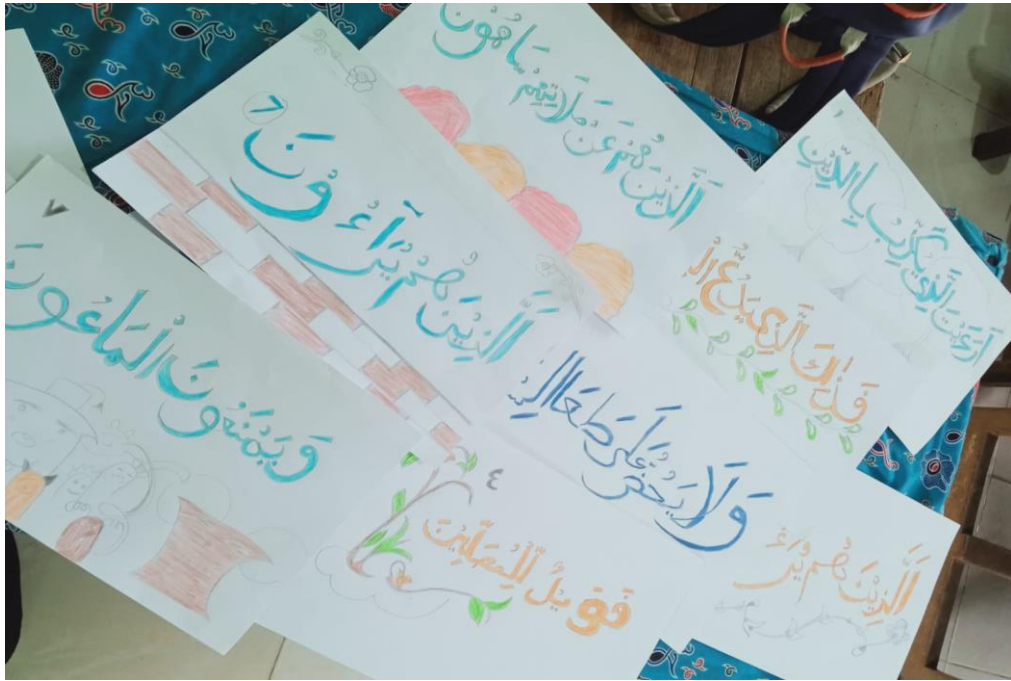 ١
أرءيت الذي يكذب بالدين
فذلك الذي يدع ال
ولا يحض على طعا
٤
فويل للمصلين
الذين هم عن صلاتهم ساهون
٦
الذين هم يراءون
الذين هم يراء
٧
ويمنعون الماعون